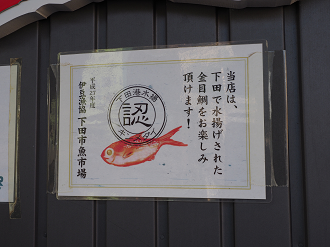 当店は、
下田で水揚げされた
金目鯛をお楽しみ
頂けます!
下田港水揚
認
キンメダイ
平成27年度
伊豆漁協 下田市魚市場